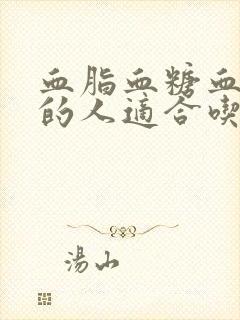 血脂血糖血
的人適合喫
湯山